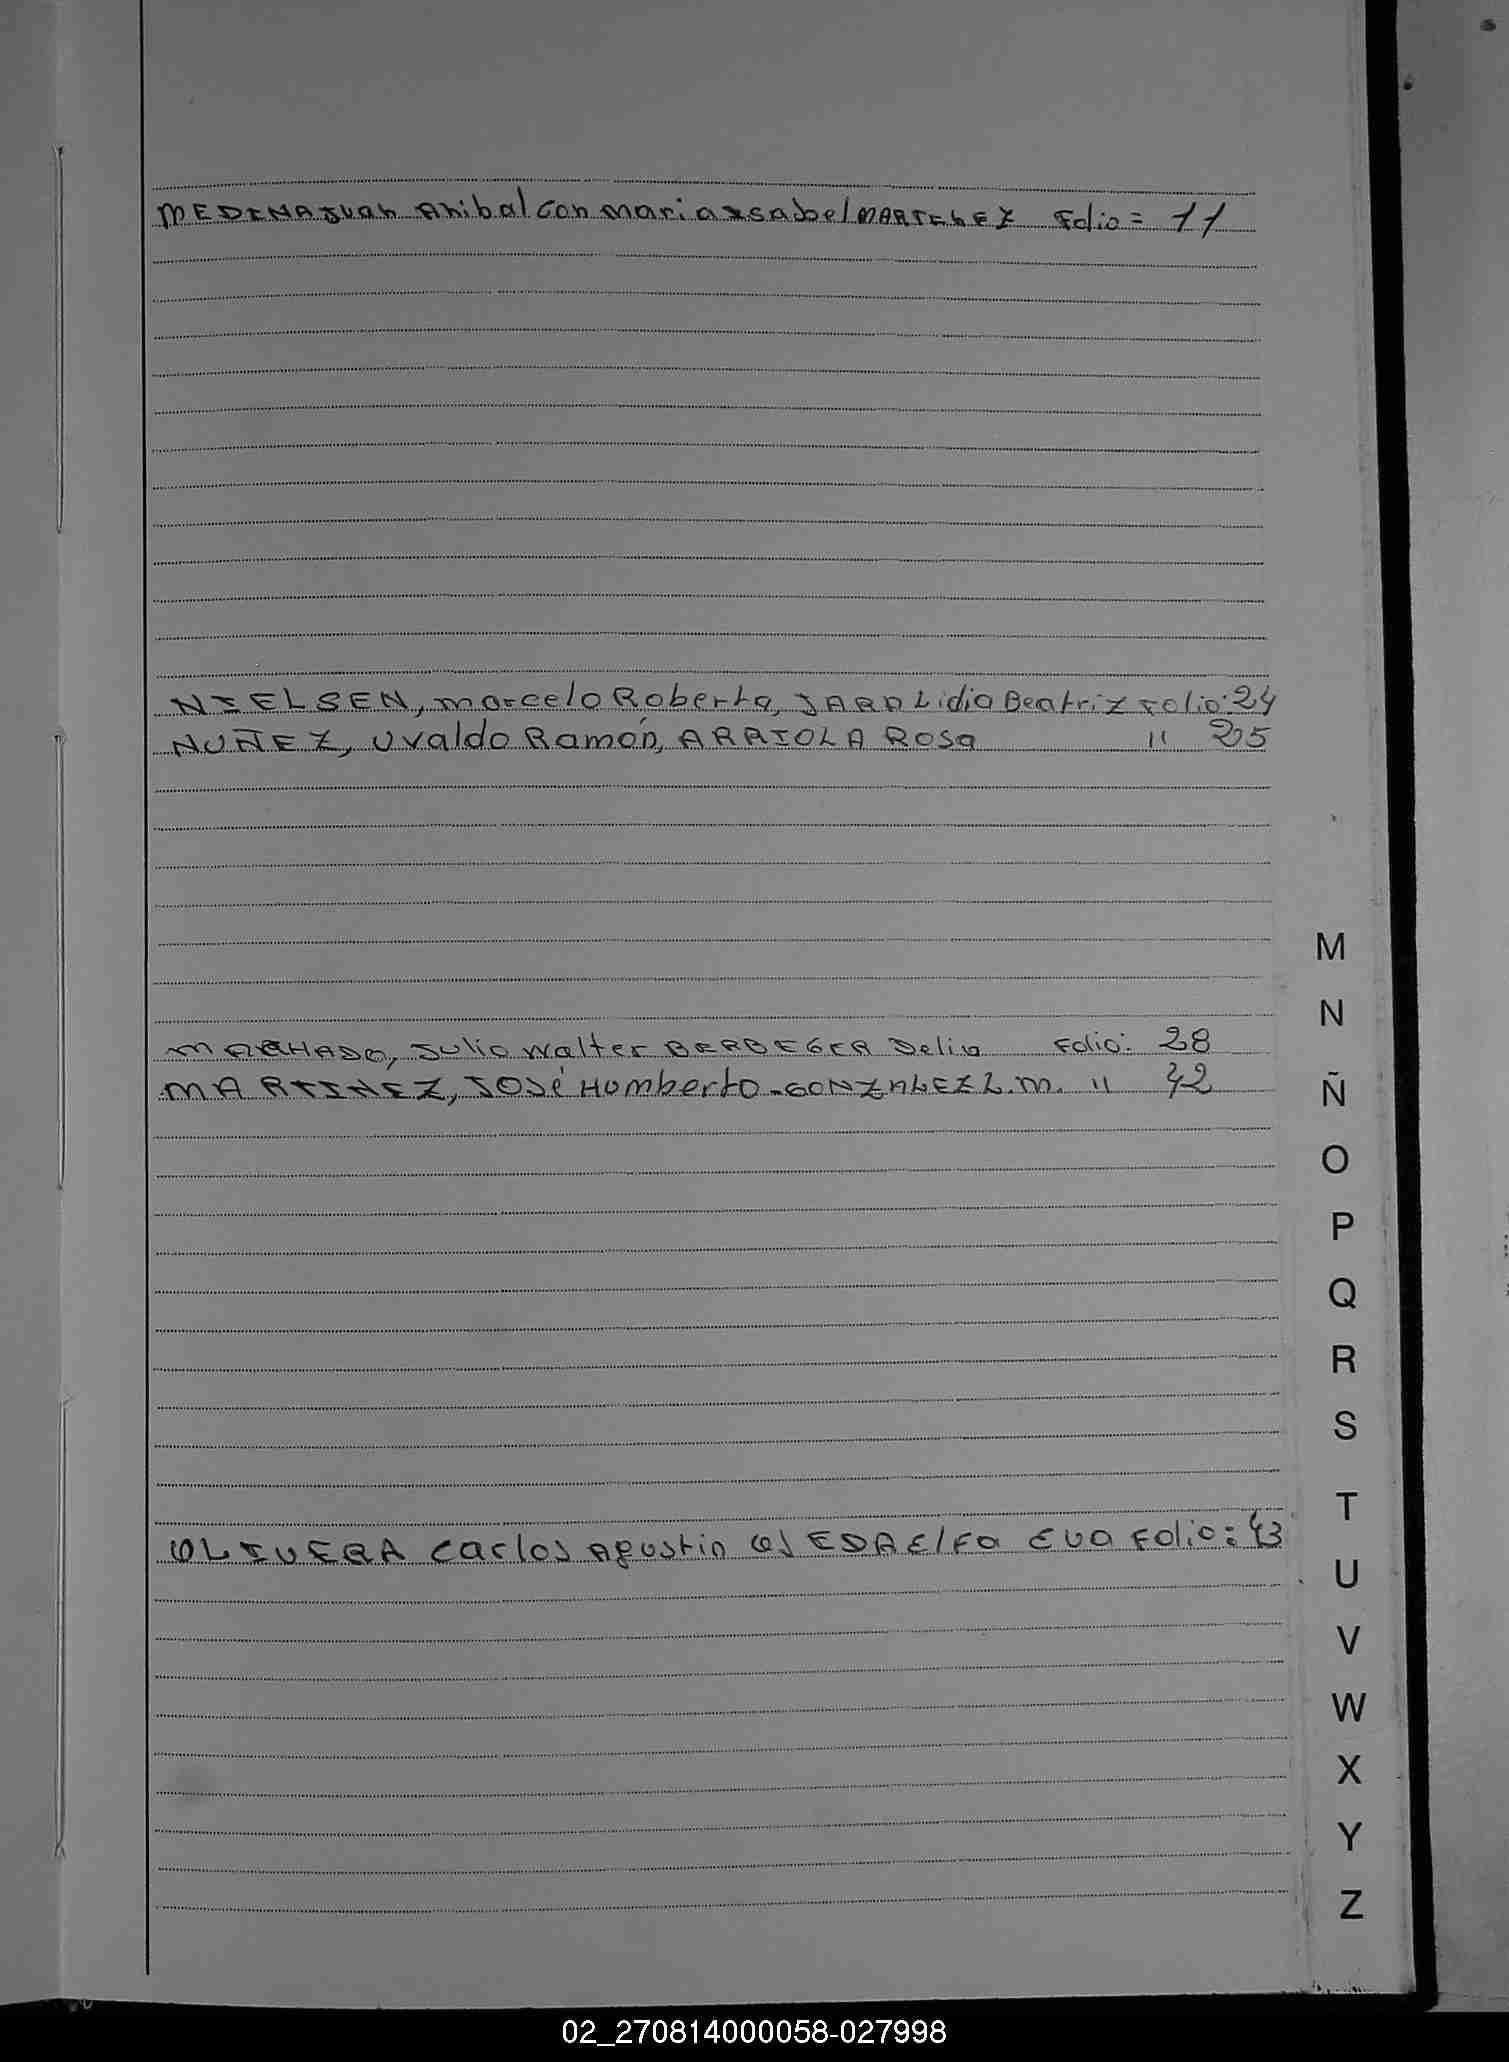 MEDINA Juan Anibal con maria Isabel MARTINEZ Folio = 11
NIELSEN, marcelo Roberto, JARA Lidia Beatriz Folio: 24
NUÑEZ, Uvaldo Ramón, ARRIOLA Rosa " 25
MACHADO, Julio Walter BERBEGER Delia Folio: 28
MARTINEZ, José Humberto - GONZALEZ L.M. " 42
OLIVERA Carlos Agustin Folio: 43
M
N
Ñ
O
P
Q
R
S
T
U
V
W
X
Y
Z
02_270814000058-027998